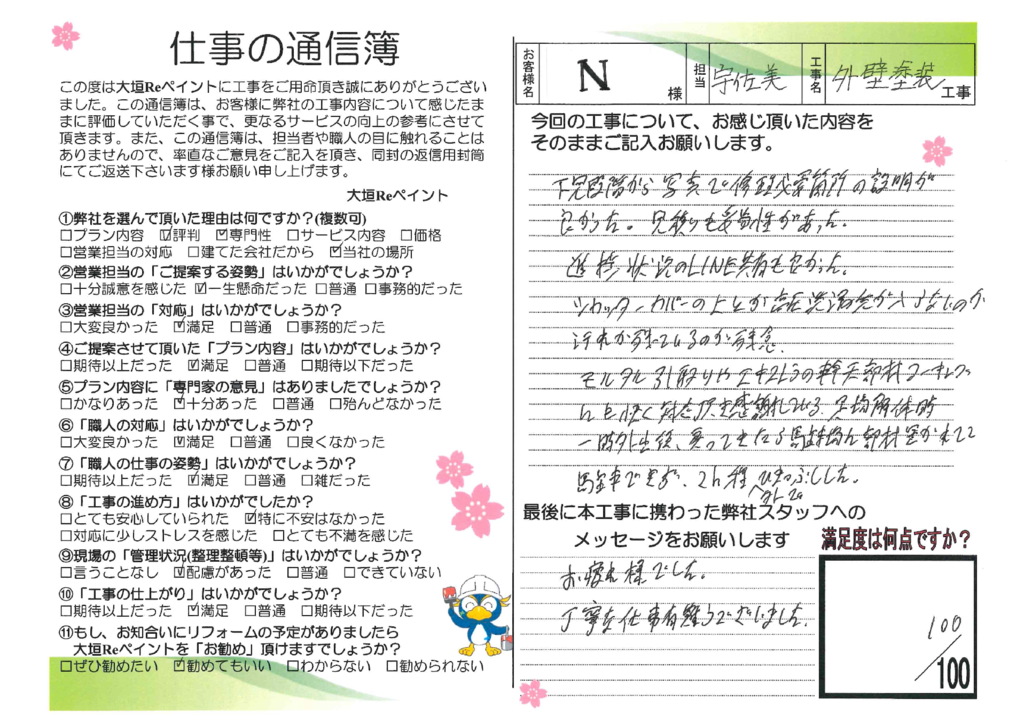 仕事の通信簿
この度は大垣Reペイントに工事をご用命頂き誠にありがとうござい
ました。この通信簿は、お客様に弊社の工事内容について感じたま
まに評価していただく事で、更なるサービスの向上の参考にさせて
頂きます。また、この通信簿は、担当者や職人の目に触れることは
ありませんので、率直なご意見をご記入を頂き、同封の返信用封筒
にてご返送下さいます様お願い申し上げます。
大垣Reペイント
①弊社を選んで頂いた理由は何ですか?(複数可)
□プラン内容 ☑評判 ☑専門性 □サービス内容 □価格
□営業担当の対応 □建てた会社だから ☑当社の場所
②営業担当の「ご提案する姿勢」はいかがでしょうか?
□十分誠意を感じた ☑一生懸命だった □普通 □事務的だった
③営業担当の「対応」はいかがでしょうか?
□大変良かった ☑満足 □普通 □事務的だった
④ご提案させて頂いた「プラン内容」はいかがでしょうか?
□期待以上だった ☑満足 □普通 □期待以下だった
⑤プラン内容に「専門家の意見」はありましたでしょうか?
□かなりあった ☑十分あった □普通 □殆んどなかった
⑥「職人の対応」はいかがでしょうか?
□大変良かった ☑満足 □普通 □良くなかった
⑦「職人の仕事の姿勢」はいかがでしょうか?
□期待以上だった ☑満足 □普通 □雑だった
⑧「工事の進め方」はいかがでしたか?
□とても安心していられた ☑特に不安はなかった
□対応に少しストレスを感じた □とても不満を感じた
⑨現場の「管理状況(整理整頓等)」はいかがでしょうか?
□言うことなし ☑配慮があった □普通 □できていない
⑩「工事の仕上がり」はいかがでしょうか?
□期待以上だった ☑満足 □普通 □期待以下だった
⑪もし、お知合いにリフォームの予定がありましたら
大垣Reペイントを「お勧め」頂けますでしょうか?
□ぜひ勧めたい ☑勧めてもいい □わからない □勧められない
お客様名 N 様 担当 宇佐美 工事名 外壁塗装工事
今回の工事について、お感じ頂いた内容を
そのままご記入お願いします。
下見段階から写真で修理必要箇所の説明が
良かった。見積りも妥当性があった。
進捗状況のLINE共有も良かった。
シャッターカバーの上とか
汚れが残っているのが残念。
モルタル引取りや
快く対応頂き感謝している。足場解体時
一時外出後、戻ってきたら駐車場に部材置かれてて
駐車できず、2h程外でひまつぶしした。
最後に本工事に携わった弊社スタッフへの
メッセージをお願いします
お疲れ様でした。
丁寧な仕事有難うございました。
満足度は何点ですか?
100/100